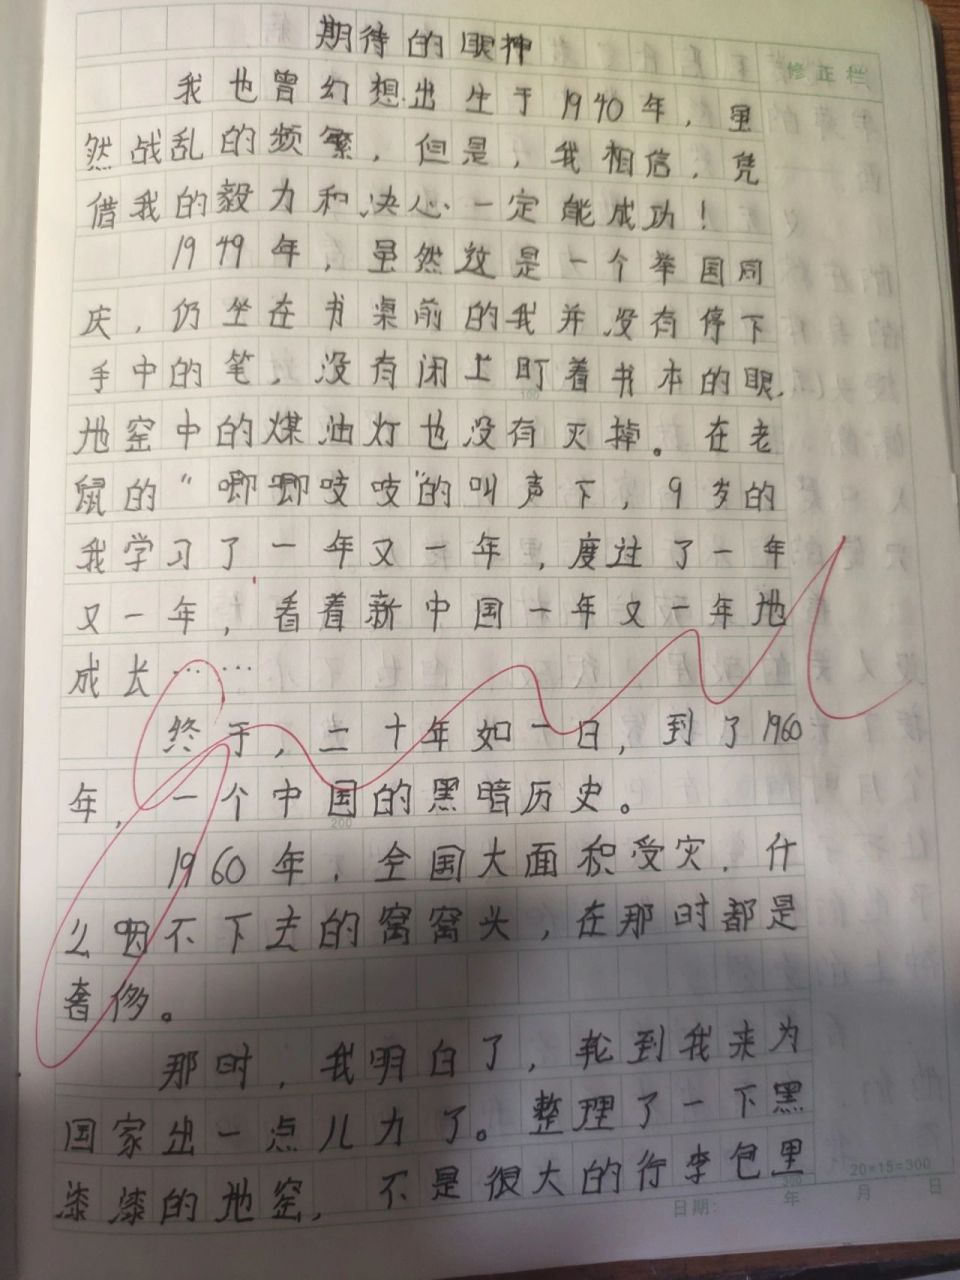 期待的眼神
修正栏
我也曾幻想出生于1940年，虽
然战乱的频繁，但是，我相信，凭
借我的毅力和决心一定能成功！
1949年，虽然这是一个举国同
庆，仍坐在书桌前的我并没有停下
手中的笔，没有闭上盯着书本的眼，
100
地窑中的煤油灯也没有灭掉。在老
鼠的“唧唧吱吱”的叫声下，9岁的
我学习了一年又一年，度过了一年
又一年，看着新中国一年又一年地
成长……
终于，二十年如一日，到了1960
年，一个中国的黑暗历史。
200
1960年，全国大面积受灾，什
么咽不下去的窝窝头，在那时都是
奢侈。
那时，我明白了，轮到我来为
国家出一点儿力了。整理了一下黑
漆漆的地窑，不是很大的行李包里
20×15=300
300
日期： 年 月 日